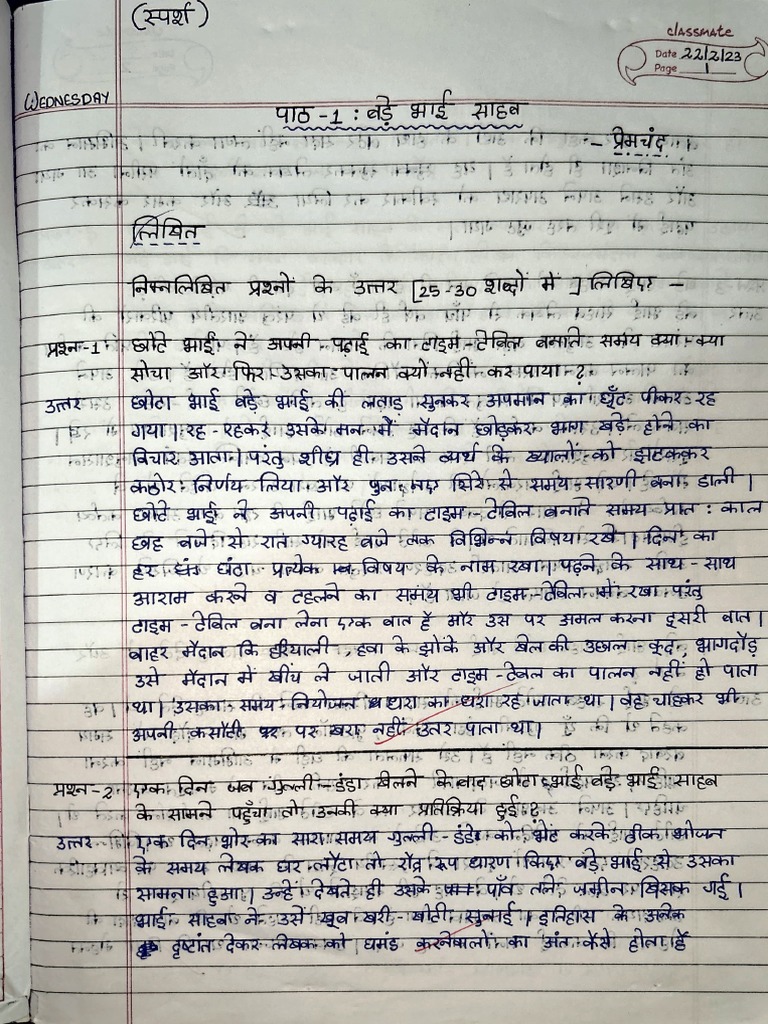 (स्पर्श)
classmate
Date 22/2/23
Page 1
WEDNESDAY
पाठ -1 : बड़े भाई साहब
- प्रेमचंद
लिखित
निम्नलिखित प्रश्नों के उत्तर [25-30 शब्दों में] लिखिए -
प्रश्न-1 छोटे भाई ने अपनी पढ़ाई का टाइम-टेबिल बनाते समय क्या-क्या
सोचा और फिर उसका पालन क्यों नहीं कर पाया ?
उत्तर छोटा भाई बड़े भाई की लताड़ सुनकर अपमान का घूँट पीकर रह
गया | रह-रहकर उसके मन में मैदान छोड़कर भाग खड़े होने का
विचार आता | परंतु शीघ्र ही उसने व्यर्थ के ख्यालों को झटककर
कठोर निर्णय लिया और पुनः नए सिरे से समय-सारणी बना डाली |
छोटे भाई ने अपनी पढ़ाई का टाइम-टेबिल बनाते समय प्रात : काल
छह बजे से रात ग्यारह बजे तक विभिन्न विषया रखे | दिन का
हर घंटा प्रत्येक विषय के नाम रखा | पढ़ने के साथ-साथ
आराम करने व टहलने का समय भी टाइम-टेबिल में रखा परंतु
टाइम-टेबिल बना लेना एक बात है और उस पर अमल करना दूसरी बात |
बाहर मैदान कि हरियाली , हवा के झोके और खेल की उछल-कूद, भागदौड़
उसे मैदान में खींच ले जाती और टाइम-टेबल का पालन नहीं हो पाता
था | उसका समय नियोजन धरा का धरा रह जाता था | वह चाहकर भी
अपनी कसौटी पर खरा नहीं उतर पाता था |
प्रश्न-2 एक दिन जब गुल्ली-डंडा खेलने के बाद छोटा भाई बड़े भाई साहब
के सामने पहुँचा तो उनकी क्या प्रतिक्रिया हुई ?
उत्तर एक दिन भोर का सारा समय गुल्ली-डंडे को भेंट करके ठीक भोजन
के समय लेखक घर लौटा तो रौद्र रूप धारण किए बड़े भाई से उसका
सामना हुआ | उन्हें देखते ही उसके पाँव तले जमीन खिसक गई |
भाई साहब ने उसे खूब खरी-खोटी सुनाई | इतिहास के अनेक
दृष्टांत देकर लेखक को घमंड करनेवालों का अंत कैसे होता है